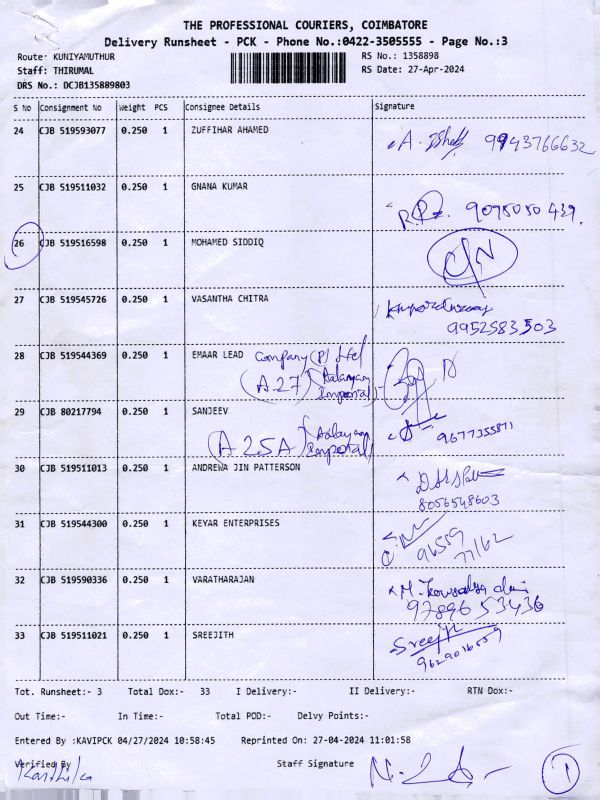 THE PROFESSIONAL COURIERS, COIMBATORE
Delivery Runsheet - PCK - Phone No.:0422-3505555 - Page No.:3
Route: KUNIYAMUTHUR RS No.: 1358898
Staff: THIRUMAL RS Date: 27-Apr-2024
DRS No.: DCJB135889803
S No Consignment No Weight PCS Consignee Details Signature
24 CJB 519593077 0.250 1 ZUFFIHAR AHAMED A. 9943766632
25 CJB 519511032 0.250 1 GNANA KUMAR
9095050439.
26 CJB 519516598 0.250 1 MOHAMED SIDDIQ
27 CJB 519545726 0.250 1 VASANTHA CHITRA
9952583503
28 CJB 519544369 0.250 1 EMAAR LEAD Company (P) Ltd
(A.27) Aalayam Imperial
29 CJB 80217794 0.250 1 SANJEEV
(A 25A) Aalayam Imperial 9677355871
30 CJB 519511013 0.250 1 ANDREWA JIN PATTERSON
8056548603
31 CJB 519544300 0.250 1 KEYAR ENTERPRISES
96559
77162
32 CJB 519590336 0.250 1 VARATHARAJAN M. Kowsalya
9789653436
33 CJB 519511021 0.250 1 SREEJITH Sreejith
9629016559
Tot. Runsheet:- 3 Total Dox:- 33 I Delivery:- II Delivery:- RTN Dox:-
Out Time:- In Time:- Total POD:- Delvy Points:-
Entered By :KAVIPCK 04/27/2024 10:58:45 Reprinted On: 27-04-2024 11:01:58
Verified By Staff Signature
Karthika